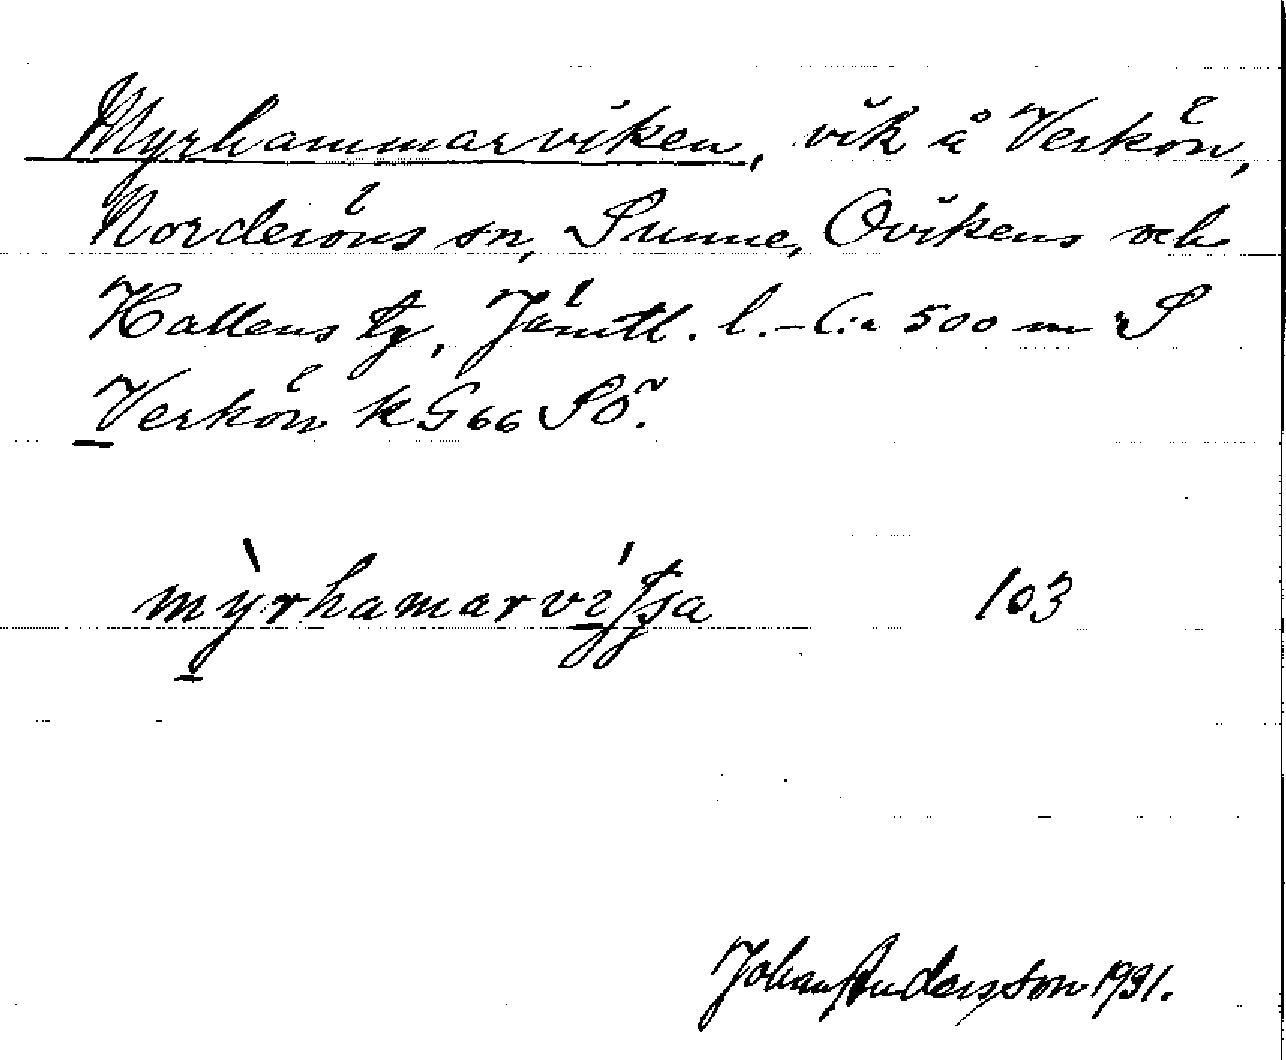 Myrhammarviken, vik å Verkön,
Norderöns sn, Sunne, Ovikens och
Hallens tg, Jämtl. l. – C:a 500 m S
Verkön k G66 SÖ.
103
Johan Andersson 1931.